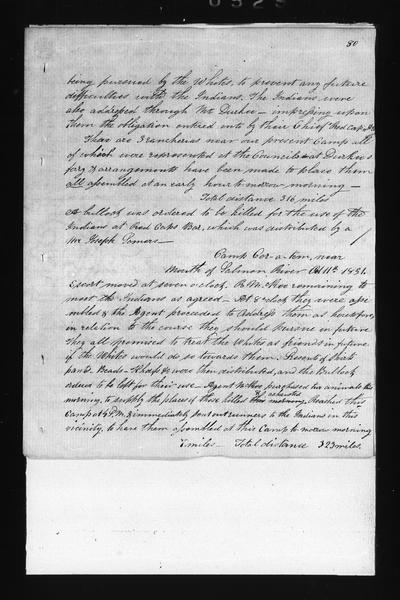 80
being pursued by the Whites, to prevent any future
difficulties with the Indians. The Indians were
also addressed through Mr Durkee — impressing upon
them the obligation entered into by their Chief Red Cap, &c
There are 3 rancherias near our present Camp all
of which were represented at the Council at Durkee's
ferry & arrangements have been made to place them
all assembled at an early hour to morrow morning —
Total distance 316 miles
A bullock was ordered to be killed for the use of the
Indians at Red Caps Bar, which was distributed by a
Mr Joseph Somers —
Camp Cor-a-tem, near
Mouth of Salmon River Oct 11th 1851.
Escort moved at seven o'clock. R. McKee remaining to
meet the Indians as agreed — At 8 o'clock they were assem
bled & the Agent proceeded to address them as heretofore,
in relation to the course they should pursue in future
They all promised to treat the Whites as friends in future
if the Whites would do so towards them. Presents of Shirts
pants. Beads — Knives & were then distributed, and the Bullock
ordered to be left for their use — Agent McKee purchased two animals this
morning, to supply the place of those killed & exhausted. Reached this
Camp at P.M. & immediately sent out runners to the Indians in this
vicinity, to have them assembled at this Camp to morrow morning
7 miles — Total distance 323 miles.